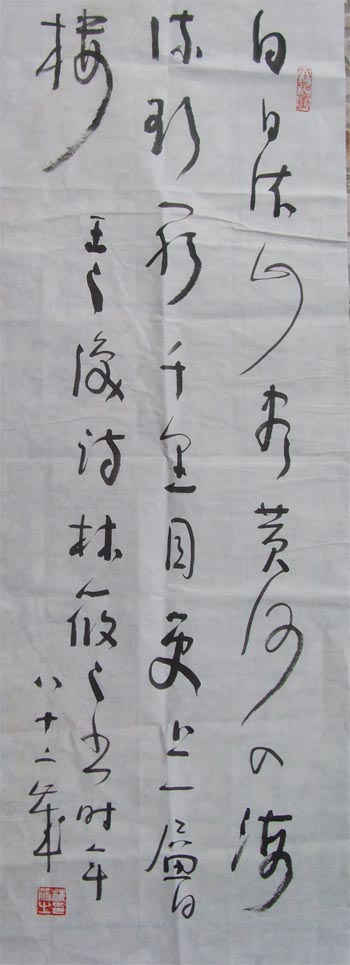 白日依山尽黄河入海
流欲穷千里目更上一層
楼
王之涣诗林筱之书时年
八十二歲